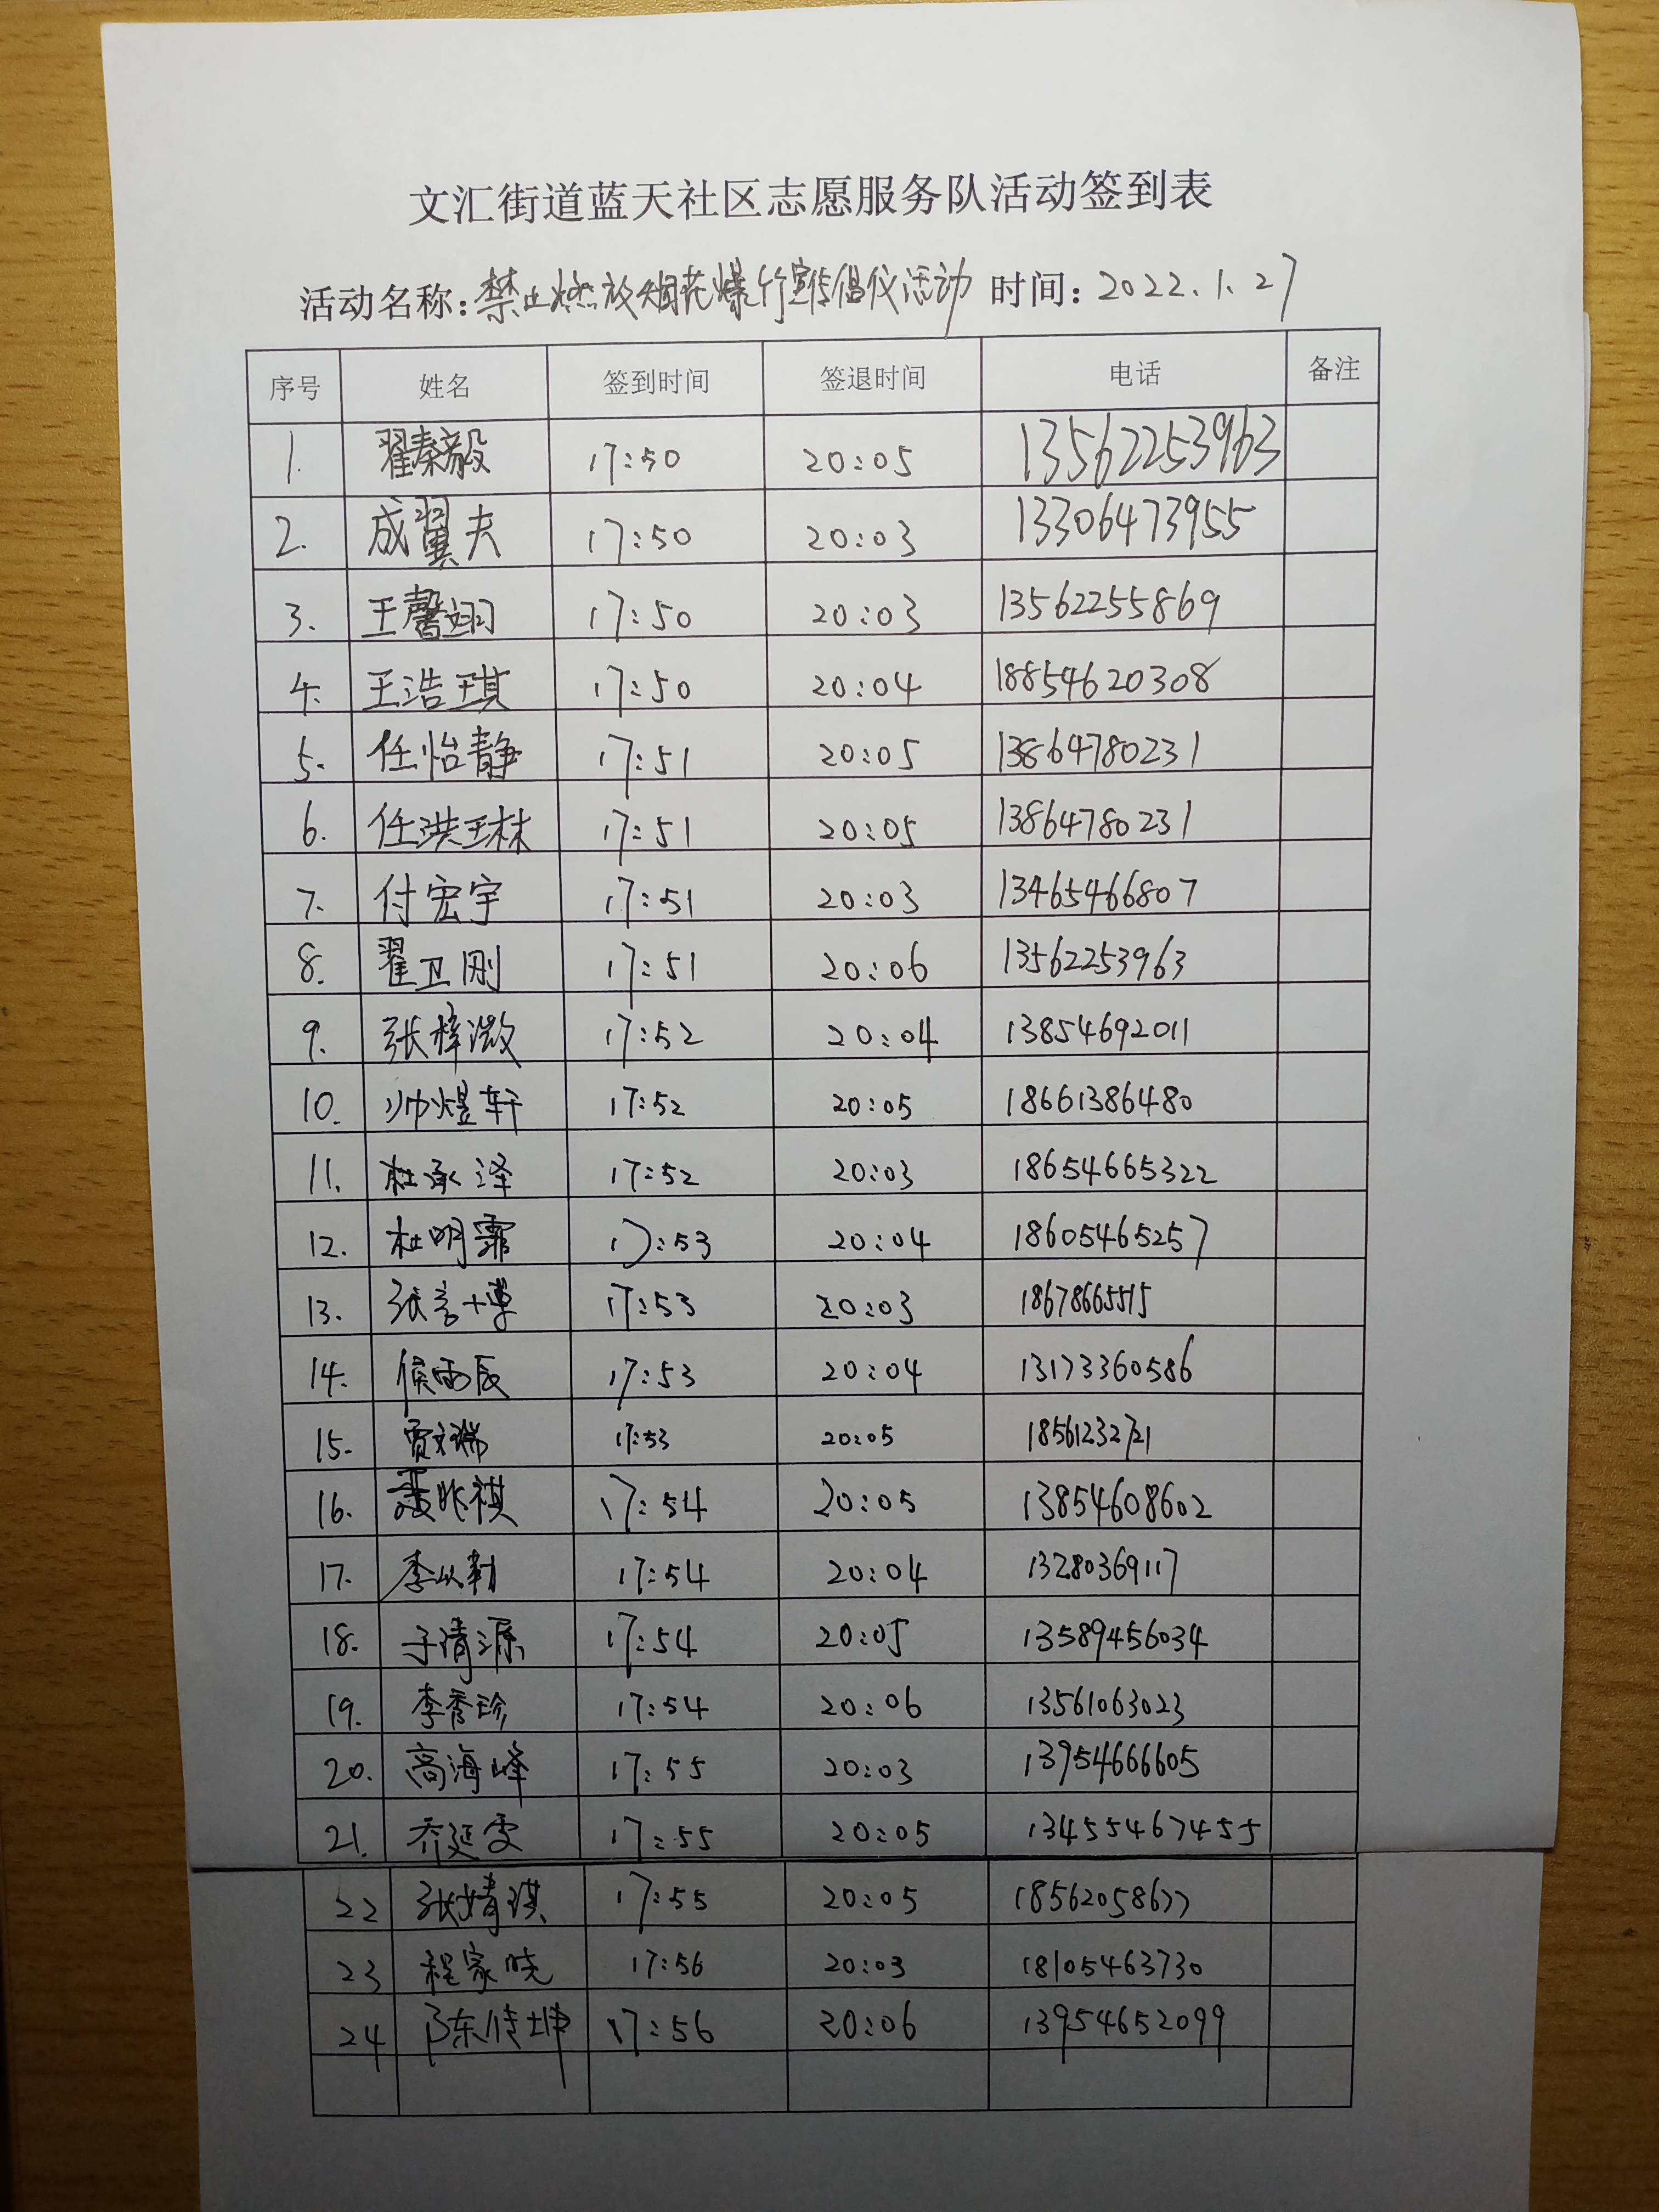 文汇街道蓝天社区志愿服务队活动签到表
活动名称:禁止燃放烟花爆竹宣传倡仪活动 时间:2022.1.27
序号 姓名 签到时间 签退时间 电话 备注
1. 翟秦毅 17:50 20:05 13562253963
2. 成翼夫 17:50 20:03 13306473955
3. 王馨翊 17:50 20:03 13562255869
4. 王浩琪 17:50 20:04 18854620308
5. 任怡静 17:51 20:05 13864780231
6. 任洪琳 17:51 20:05 13864780231
7. 付宏宇 17:51 20:03 13465466807
8. 翟卫刚 17:51 20:06 13562253963
9. 张梓溦 17:52 20:04 13854692011
10. 帅煜轩 17:52 20:05 18661386480
11. 杜承泽 17:52 20:03 18654665322
12. 杜明霏 17:53 20:04 18605465257
13. 张言博 17:53 20:03 18678665515
14. 侯雨辰 17:53 20:04 13173360586
15. 贾文瑞 17:53 20:05 18561232721
16. 聂昕祺 17:54 20:05 13854608602
17. 17:54 20:04 13280369117
18. 于清源 17:54 20:05 13589456034
19. 李秀珍 17:54 20:06 13561063023
20. 高海峰 17:55 20:03 13954666605
21. 乔延雯 17:55 20:05 13455467455
22 张婧琪 17:55 20:05 18562058677
23 程家晓 17:56 20:03 18105463730
24 陈传坤 17:56 20:06 13954652099